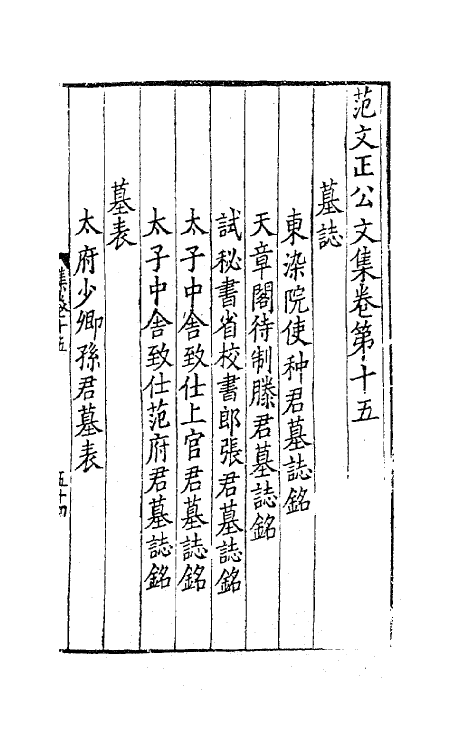 范文正公文集卷第十五
墓誌
東染院使种君墓誌銘
天章閣待制滕君墓誌銘
試秘書省校書郎張君墓誌銘
太子中舍致仕上官君墓誌銘
太子中舍致仕范府君墓誌銘
墓表
太府少卿孫君墓表